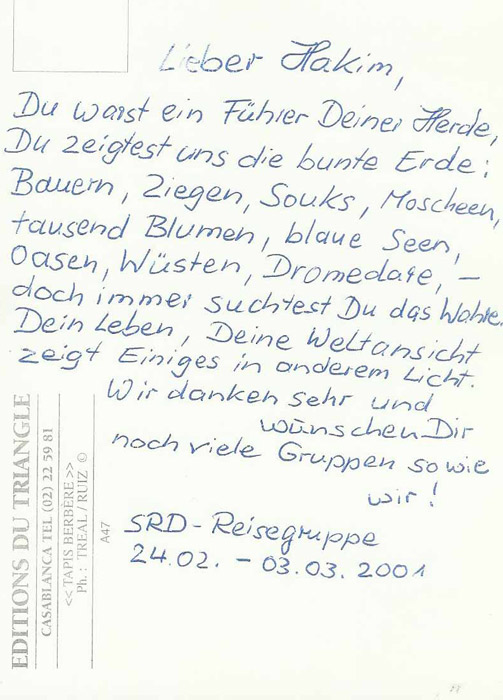 Lieber Hakim,
Du warst ein Führer Deiner Herde,
Du zeigtest uns die bunte Erde:
Bauern, Ziegen, Souks, Moscheen,
tausend Blumen, blaue Seen,
Oasen, Wüsten, Dromedare, –
doch immer suchtest Du das Wahre.
Dein Leben, Deine Weltansicht
zeigt Einiges in anderem Licht.
Wir danken sehr und
wünschen Dir
noch viele Gruppen sowie
wir!
SRD-Reisegruppe
24.02. – 03.03. 2001
EDITIONS DU TRIANGLE
CASABLANCA TEL (02) 22 59 81
<< TAPIS BERBÈRE >>
Ph. : TREAL / RUIZ ©
A47